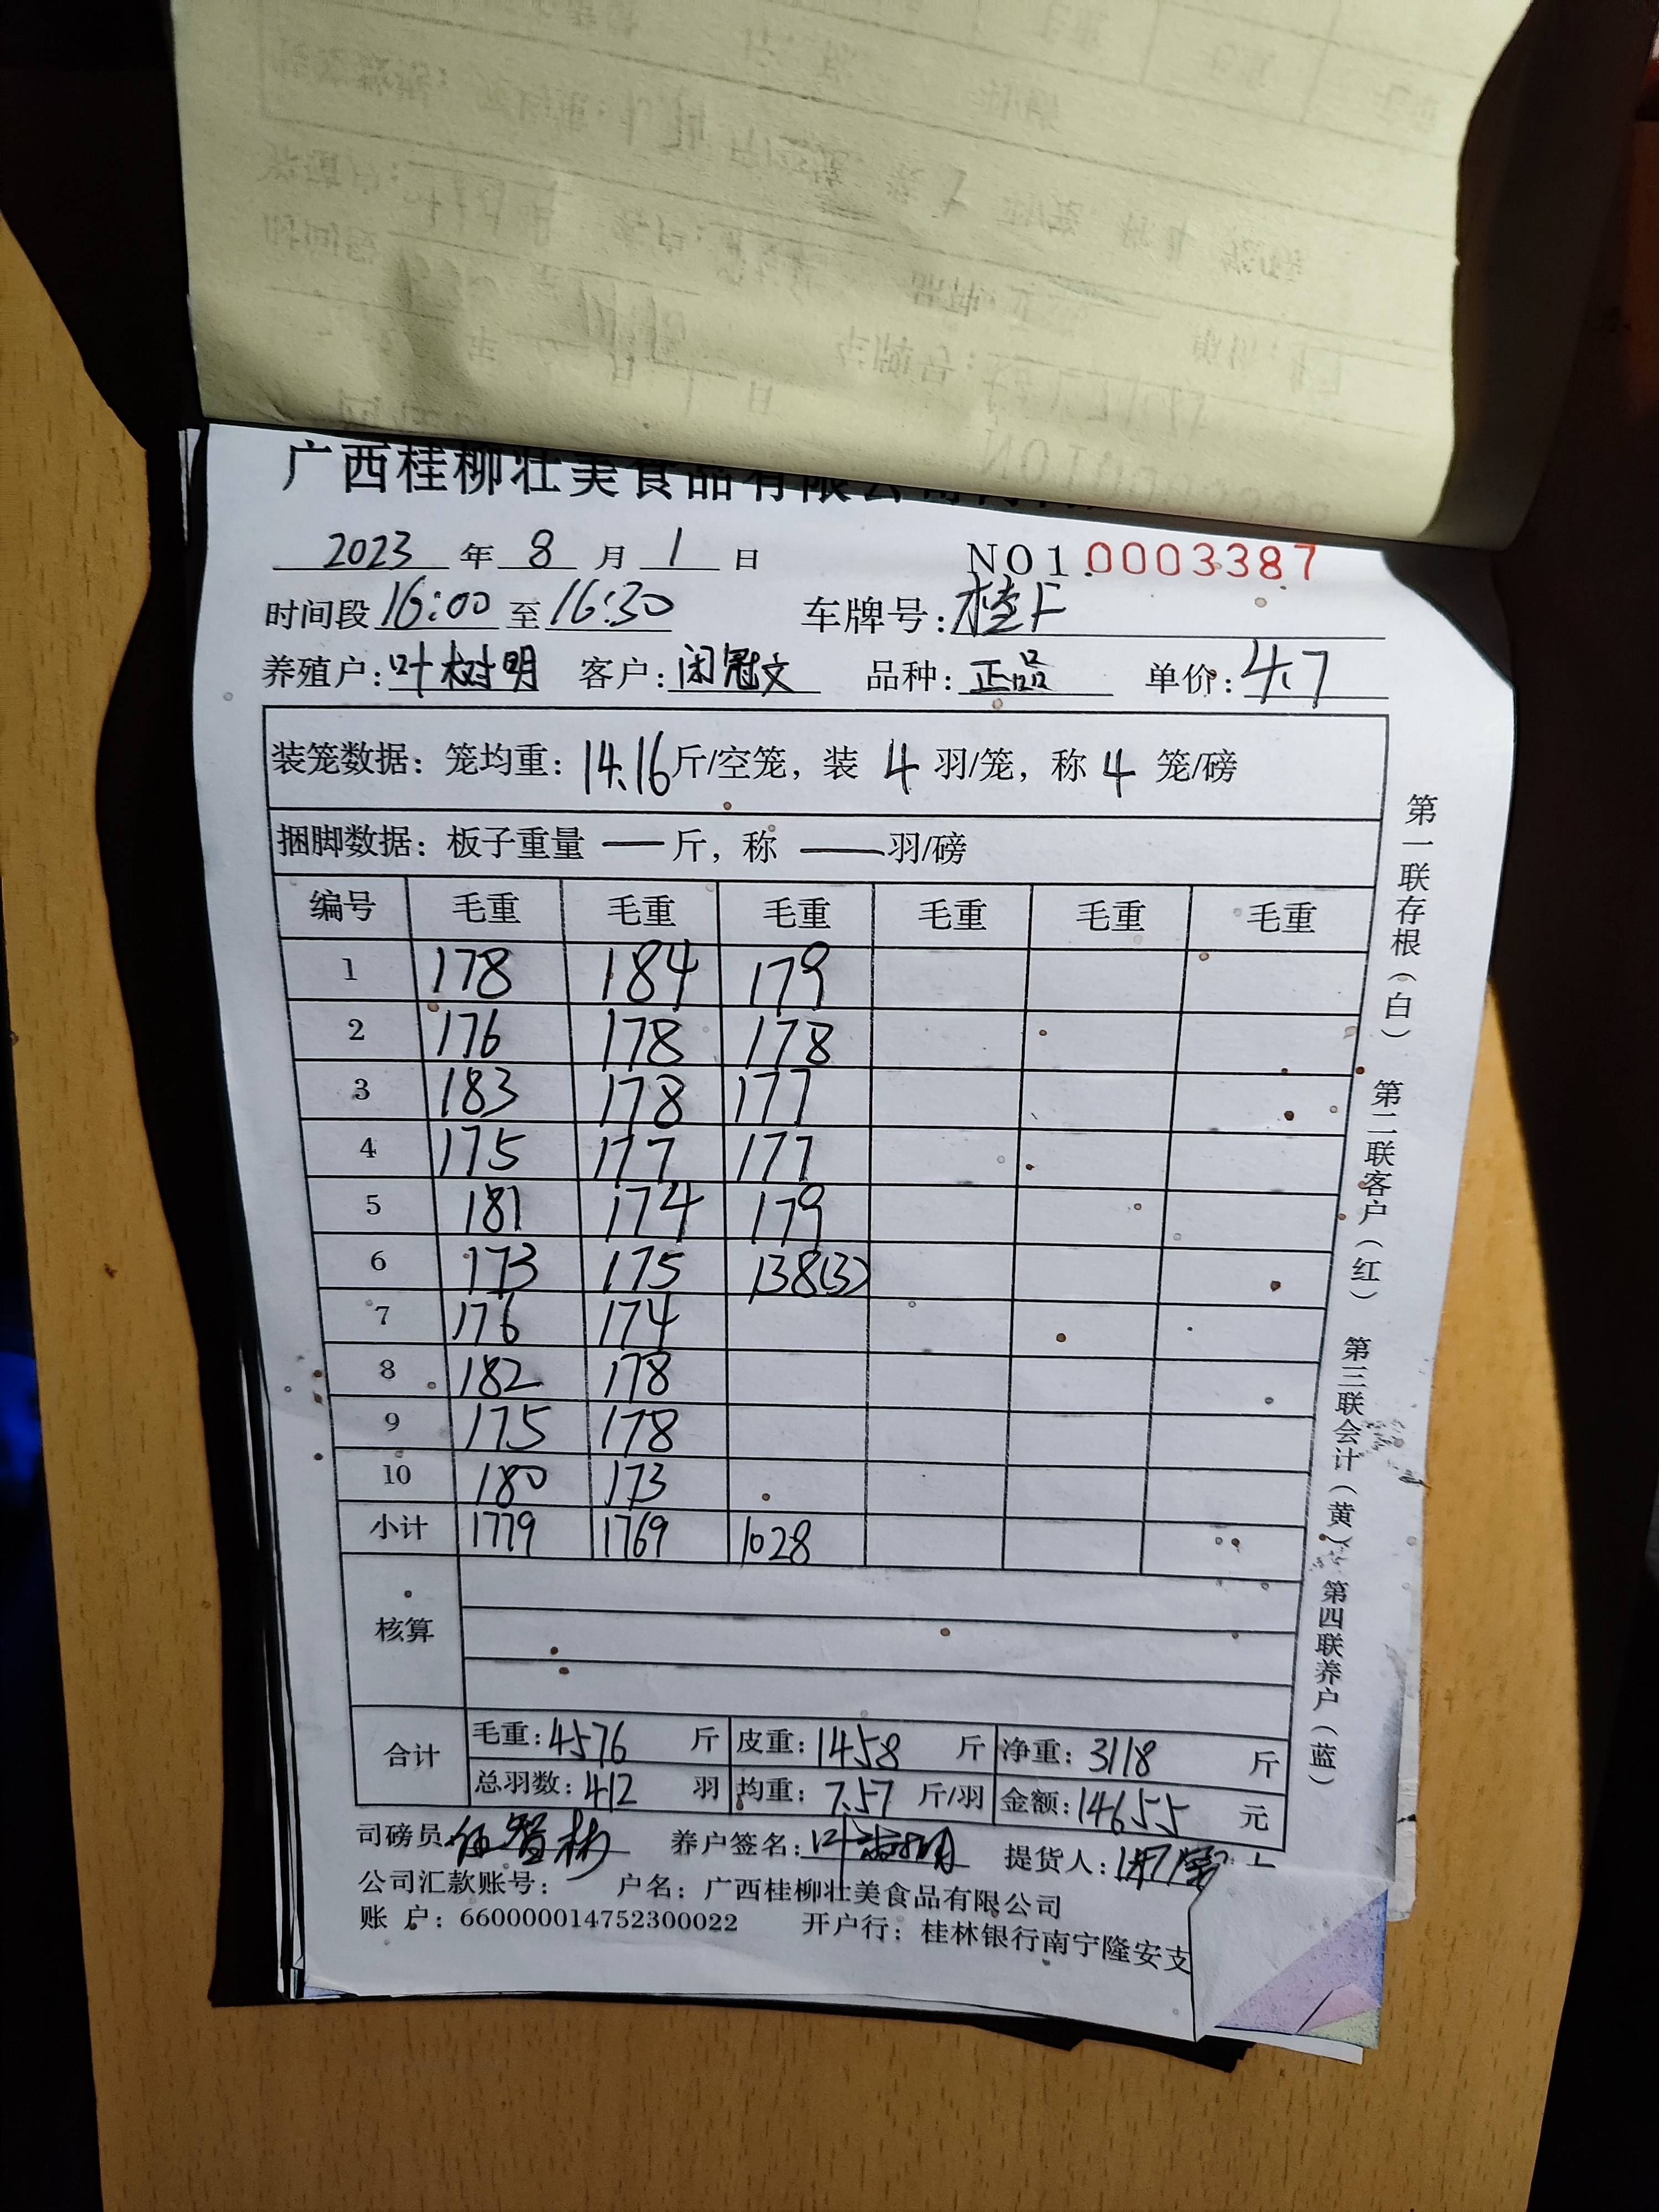 广西桂柳壮美食品有限公司
2023 年 8 月 1 日 NO1.0003387
时间段 16:00 至 16:30 车牌号: 桂F
养殖户: 叶树明 客户: 闭冠文 品种: 正品 单价: 4.7
装笼数据: 笼均重: 14.16 斤/空笼, 装 4 羽/笼, 称 4 笼/磅
捆脚数据: 板子重量 — 斤, 称 — 羽/磅
编号 毛重 毛重 毛重 毛重 毛重 毛重
1 178 184 179
2 176 178 178
3 183 178 177
4 175 177 177
5 181 174 179
6 173 175 138(3)
7 176 174
8 182 178
9 175 178
10 180 173
小计 1779 1769 1028
核算
合计 毛重: 4576 斤 皮重: 1458 斤 净重: 3118 斤
总羽数: 412 羽 均重: 7.57 斤/羽 金额: 14655 元
司磅员: 养户签名: 叶树明 提货人:
公司汇款账号: 户名: 广西桂柳壮美食品有限公司
账 户: 660000014752300022 开户行: 桂林银行南宁隆安支
第一联存根(白) 第二联客户(红) 第三联会计(黄) 第四联养户(蓝)